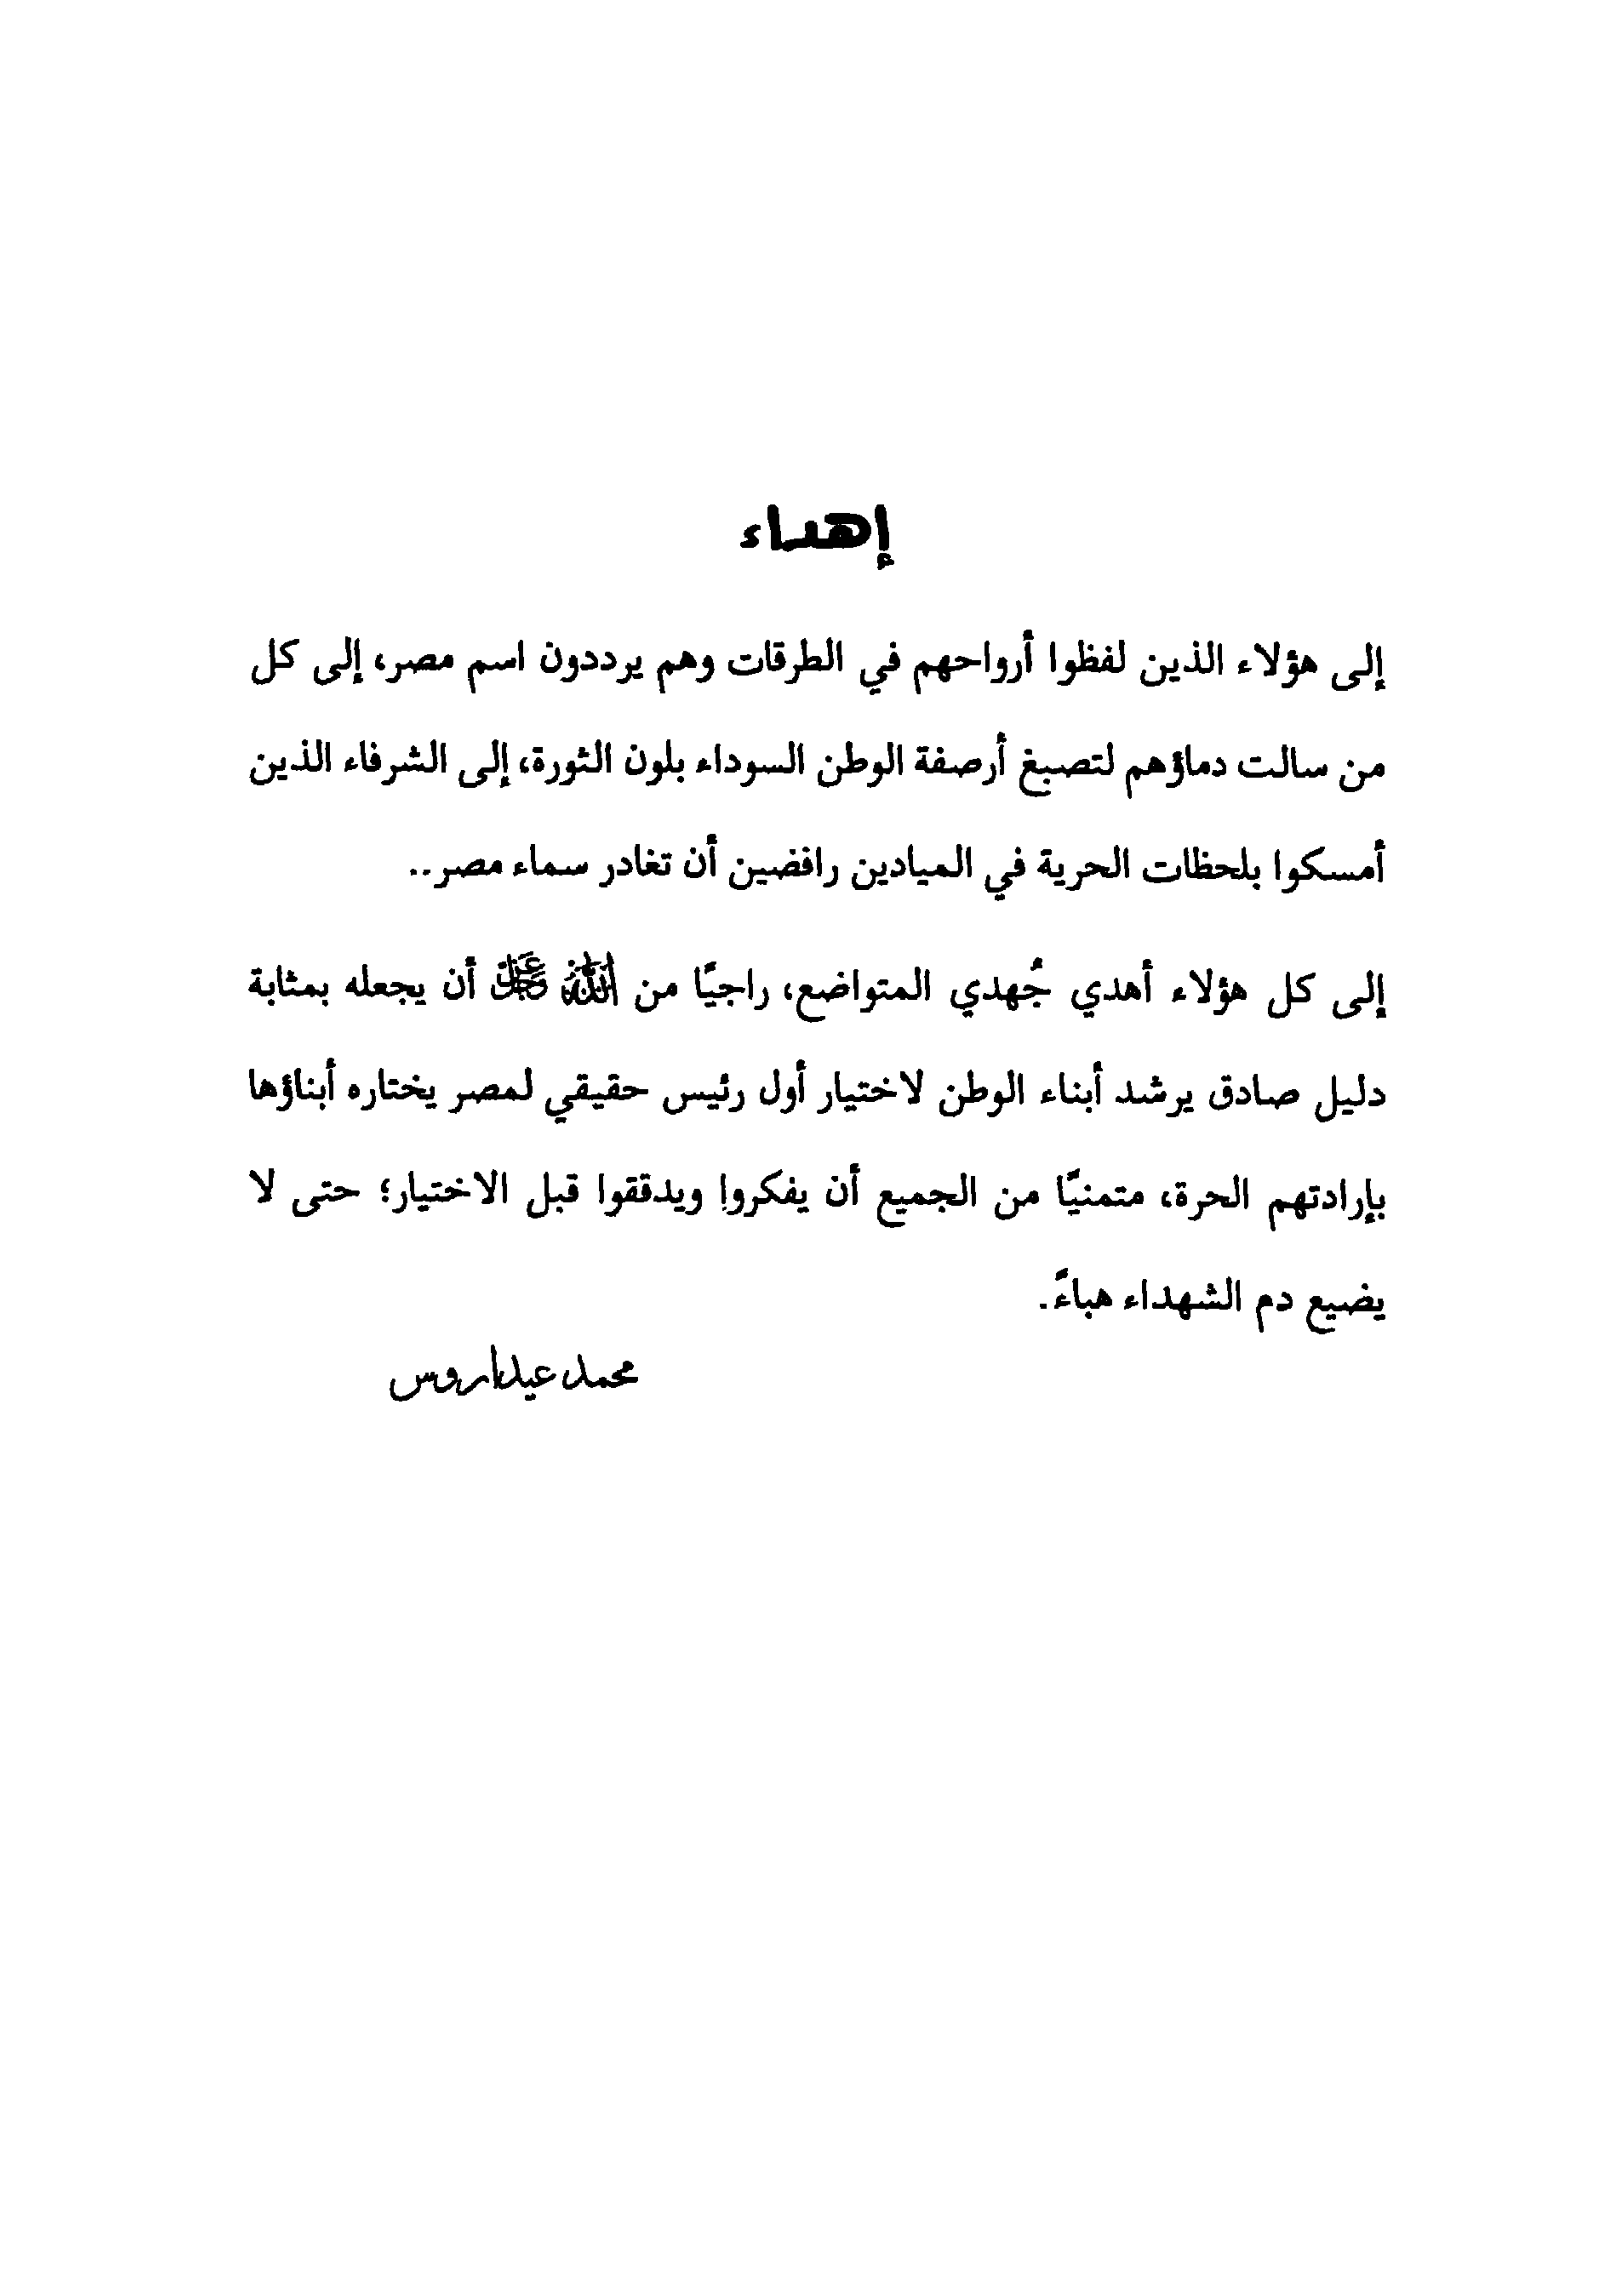 إهداء
إلى هؤلاء الذين لفظوا أرواحهم في الطرقات وهم يرددون اسم مصر، إلى كل
من سالت دماؤهم لتصبغ أرصفة الوطن السوداء بلون الثورة، إلى الشرفاء الذين
أمسكوا بلحظات الحرية في الميادين رافضين أن تغادر سماء مصر..
إلى كل هؤلاء أهدي جُهدي المتواضع، راجيًا من الله عز وجل أن يجعله بمثابة
دليل صادق يرشد أبناء الوطن لاختيار أول رئيس حقيقي لمصر يختاره أبناؤها
بإرادتهم الحرة، متمنيًا من الجميع أن يفكروا ويدققوا قبل الاختيار؛ حتى لا
يضيع دم الشهداء هباءً.
محمد عيداروس